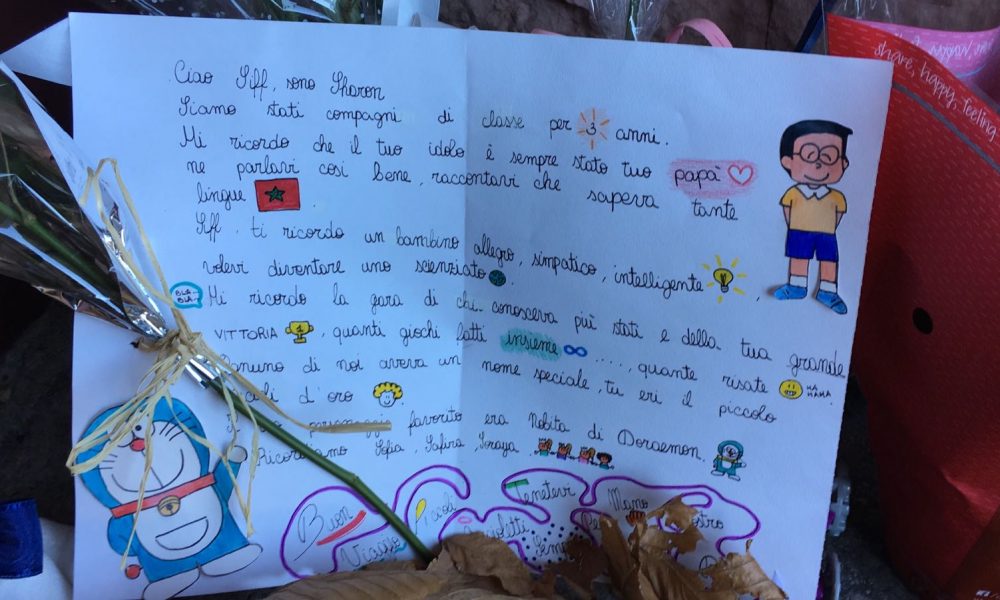 Ciao Siff, sono Sharon
Siamo stati compagni di classe per 3 anni.
Mi ricordo che il tuo idolo è sempre stato tuo papà
ne parlavi così bene, raccontavi che sapeva tante
lingue
Siff. ti ricordo un bambino allegro, simpatico, intelligente,
volevi diventare uno scienziato.
BLA.. BLA..
Mi ricordo la gara di chi conosceva più stati e della tua grande
VITTORIA 1, quanti giochi fatti insieme ..., quante risate HA HAHA.
di noi aveva un nome speciale, tu eri il piccolo
d'oro.
personaggi favorito era Nobita di Doraemon.
Sofia, Safira, Soraya.
Buon Piccoli Tenetevi Mano
Viaggio
share, happy, feeling